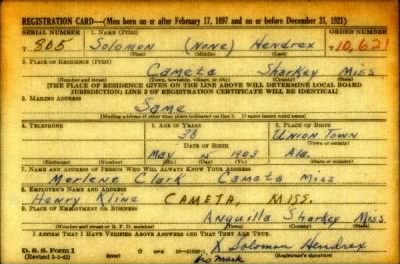 REGISTRATION CARD—(Men born on or after February 17, 1897 and on or before December 31, 1921)
SERIAL NUMBER 1. NAME (Print) ORDER NUMBER
T 805 Solomon (None) Hendrex T 10,621
(First) (Middle) (Last)
2. PLACE OF RESIDENCE (Print)
Cameta Sharkey Miss
(Number and street) (Town, township, village, or city) (County) (State)
[THE PLACE OF RESIDENCE GIVEN ON THE LINE ABOVE WILL DETERMINE LOCAL BOARD
JURISDICTION; LINE 2 OF REGISTRATION CERTIFICATE WILL BE IDENTICAL]
3. MAILING ADDRESS
Same
[Mailing address if other than place indicated on line 2. If same insert word same]
4. TELEPHONE 5. AGE IN YEARS 6. PLACE OF BIRTH
38 Union Town
DATE OF BIRTH (Town or county)
May 1903 Ala.
(Exchange) (Number) (Mo.) (Day) (Yr.) (State or country)
7. NAME AND ADDRESS OF PERSON WHO WILL ALWAYS KNOW YOUR ADDRESS
Merlene Clark Cameta Miss
8. EMPLOYER'S NAME AND ADDRESS
Henry Kline CAMETA, MISS.
9. PLACE OF EMPLOYMENT OR BUSINESS
Anguilla Sharkey Miss
(Number and street or R. F. D. number) (Town) (County) (State)
I AFFIRM THAT I HAVE VERIFIED ABOVE ANSWERS AND THAT THEY ARE TRUE.
D. S. S. Form 1 X Solomon Hendrex
(Revised 1-1-42) (Registrant's signature)
his mark